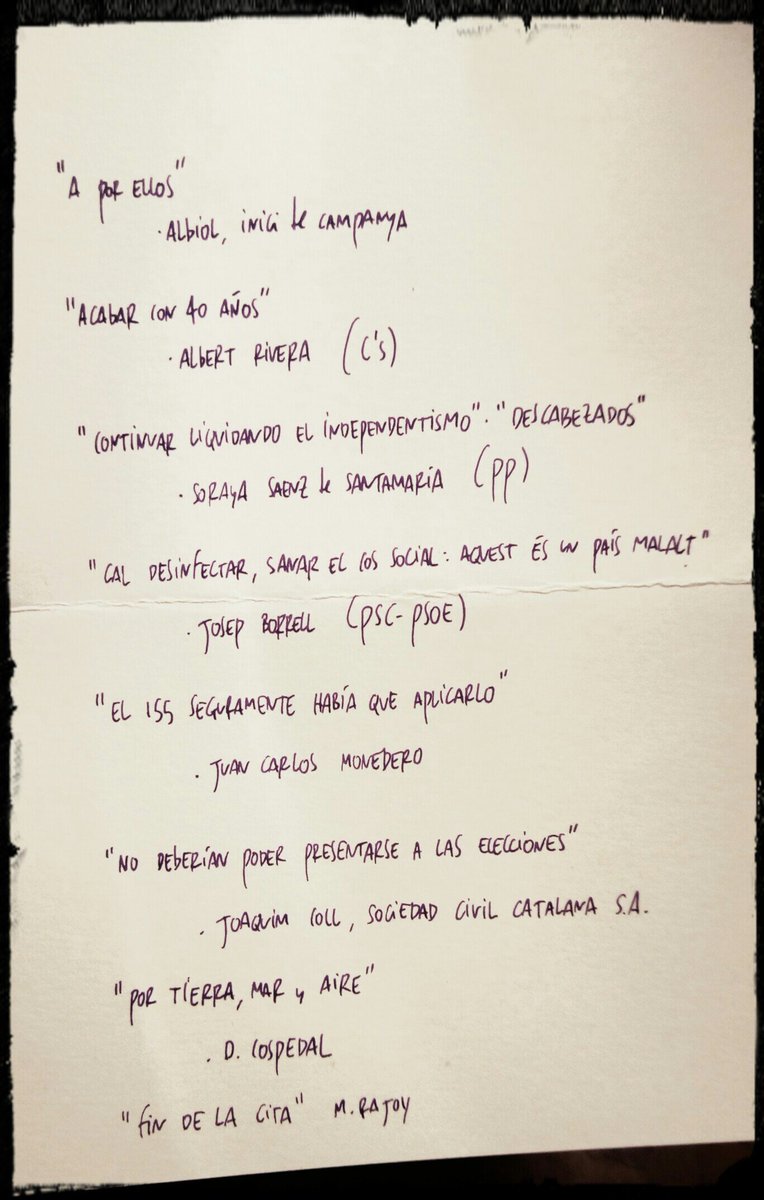 "A POR ELLOS"
· ALBIOL, INICI de CAMPANYA
"ACABAR CON 40 AÑOS"
· ALBERT RIVERA (C's)
"CONTINUAR LIQUIDANDO EL INDEPENDENTISMO" · "DESCABEZADOS"
· SORAYA SAENZ de SANTAMARÍA (PP)
"CAL DESINFECTAR, SANAR EL COS SOCIAL: AQUEST ÉS UN PAÍS MALALT"
· JOSEP BORRELL (PSC-PSOE)
"EL 155 SEGURAMENTE HABÍA QUE APLICARLO"
· JUAN CARLOS MONEDERO
"NO DEBERÍAN PODER PRESENTARSE A LAS ELECCIONES"
· JOAQUIM COLL, SOCIEDAD CIVIL CATALANA S.A.
"POR TIERRA, MAR y AIRE"
· D. COSPEDAL
"FIN DE LA CITA" M. RAJOY